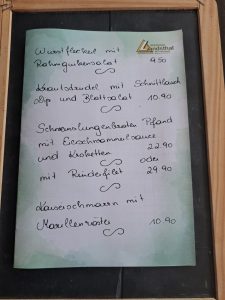 Wurstfleckerl mit
Rahmgurkensalat 9.50
Krautstrudel mit Schnittlauch
dip und Blattsalat 10.90
Schweinslungenbraten Pfand
mit Eierschwammerlsauce
und Kroketten 22.90
oder
mit Rinderfilet 29.90
Kaiserschmarrn mit
Marillenröster 10.90